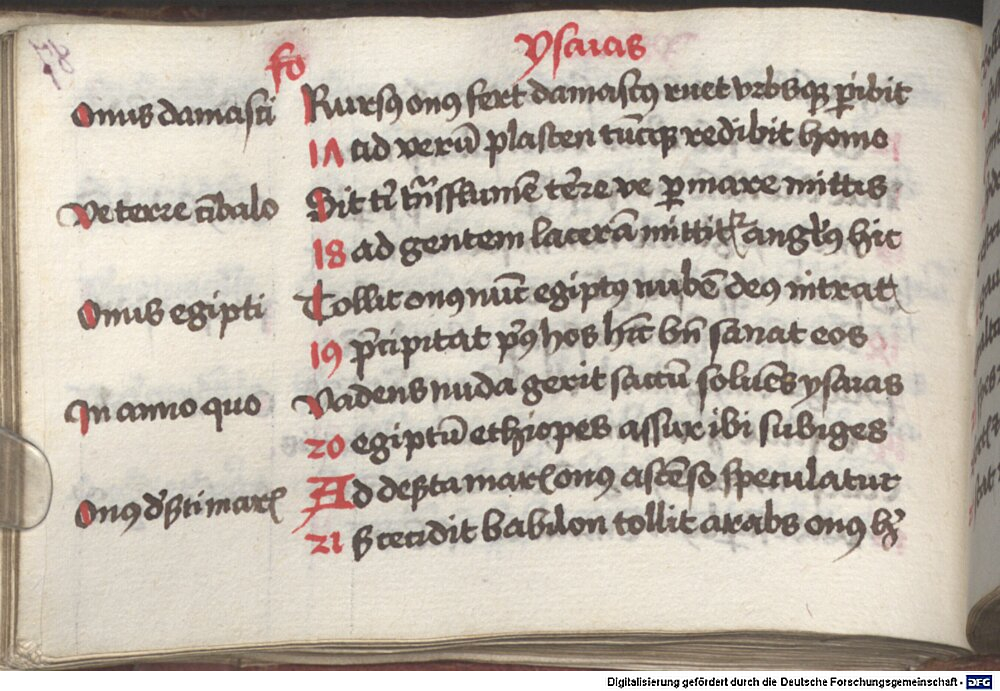 78
fo ysaias
Onus damasci Rursꝰ onꝰ fert damascꝰ ruet vrbsqꝫ ꝑibit
17 ad verū plasten tūcqꝫ redibit homo
Ve terre cībalo Sit tⁱ trⁱsstumē t're ve ꝑ mare mittis
18 ad gentem lacerā mittitꝛ anglꝰ hic
Onus egipti Tollit onꝰ nūc egiptꝰ nubē deꝰ intrat
19 p̄cipitat pꝰ hos hīc bn̄ sanat eos
In anno quo Vadens nuda gerit saccū soluēs ysaias
20 egiptū ethiopes assur ibi subiges
Onꝰ d'sti marꝭ Ad des'ta marꝭ onꝰ ascēso speculatur
21 s cecidit babilon tollit arabs onꝰ h'
Digitalisierung gefördert durch die Deutsche Forschungsgemeinschaft - DFG